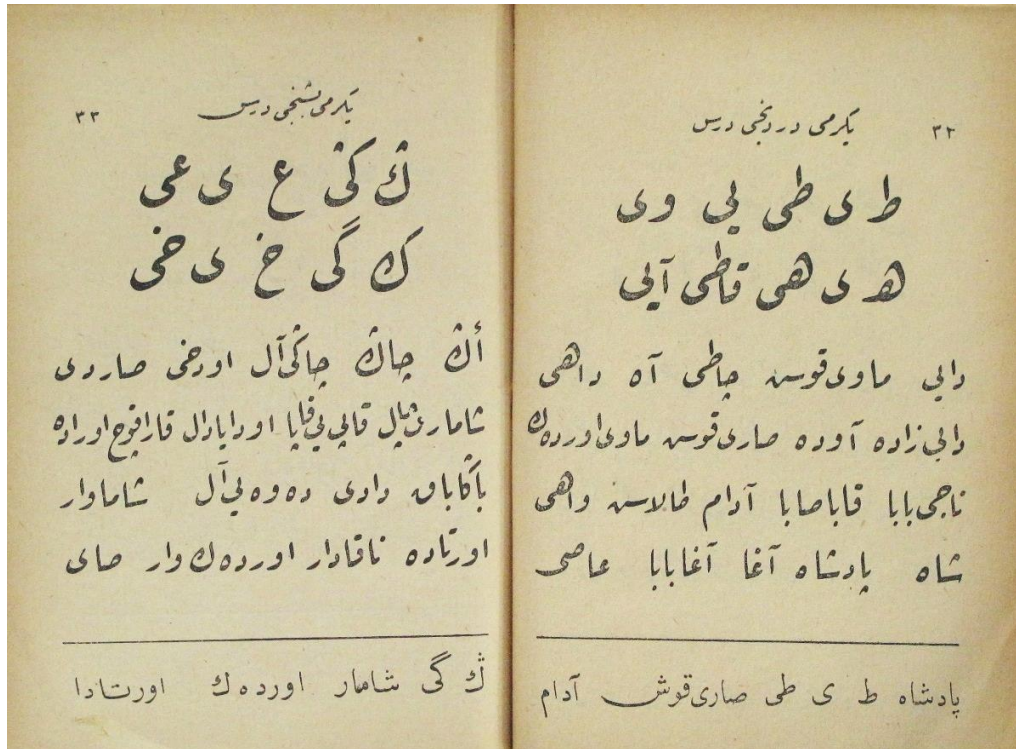 ٣٢ یكرمی دردنجی درس
ط ی طی یی وی
ه ی هی قاطی آیی
دایی ماوی قوس چاطی آه داهی
دایی زاده آوده صاری قوس ماوی اوردەك
ناجی بابا قاباصابا آدام طالاس واهی
شاه پادشاه آغا آغابابا عاصی
پادشاه ط ی طی صاری قوش آدام
یكرمی بشنجی درس ٣٣
ڭ كی ع ی عی
ك گی خ ی خی
أڭ چاڭ چاڭی آل اوخی صاردی
شاماری قاپی اودایا دال قارا قوچ اوراده
باڭا باق دادی ده‌وه‌یی آل شاماوار
اورتاده ناقادار اورده‌ك وار صای
ڭ گی شامار اورده‌ك اورتادا